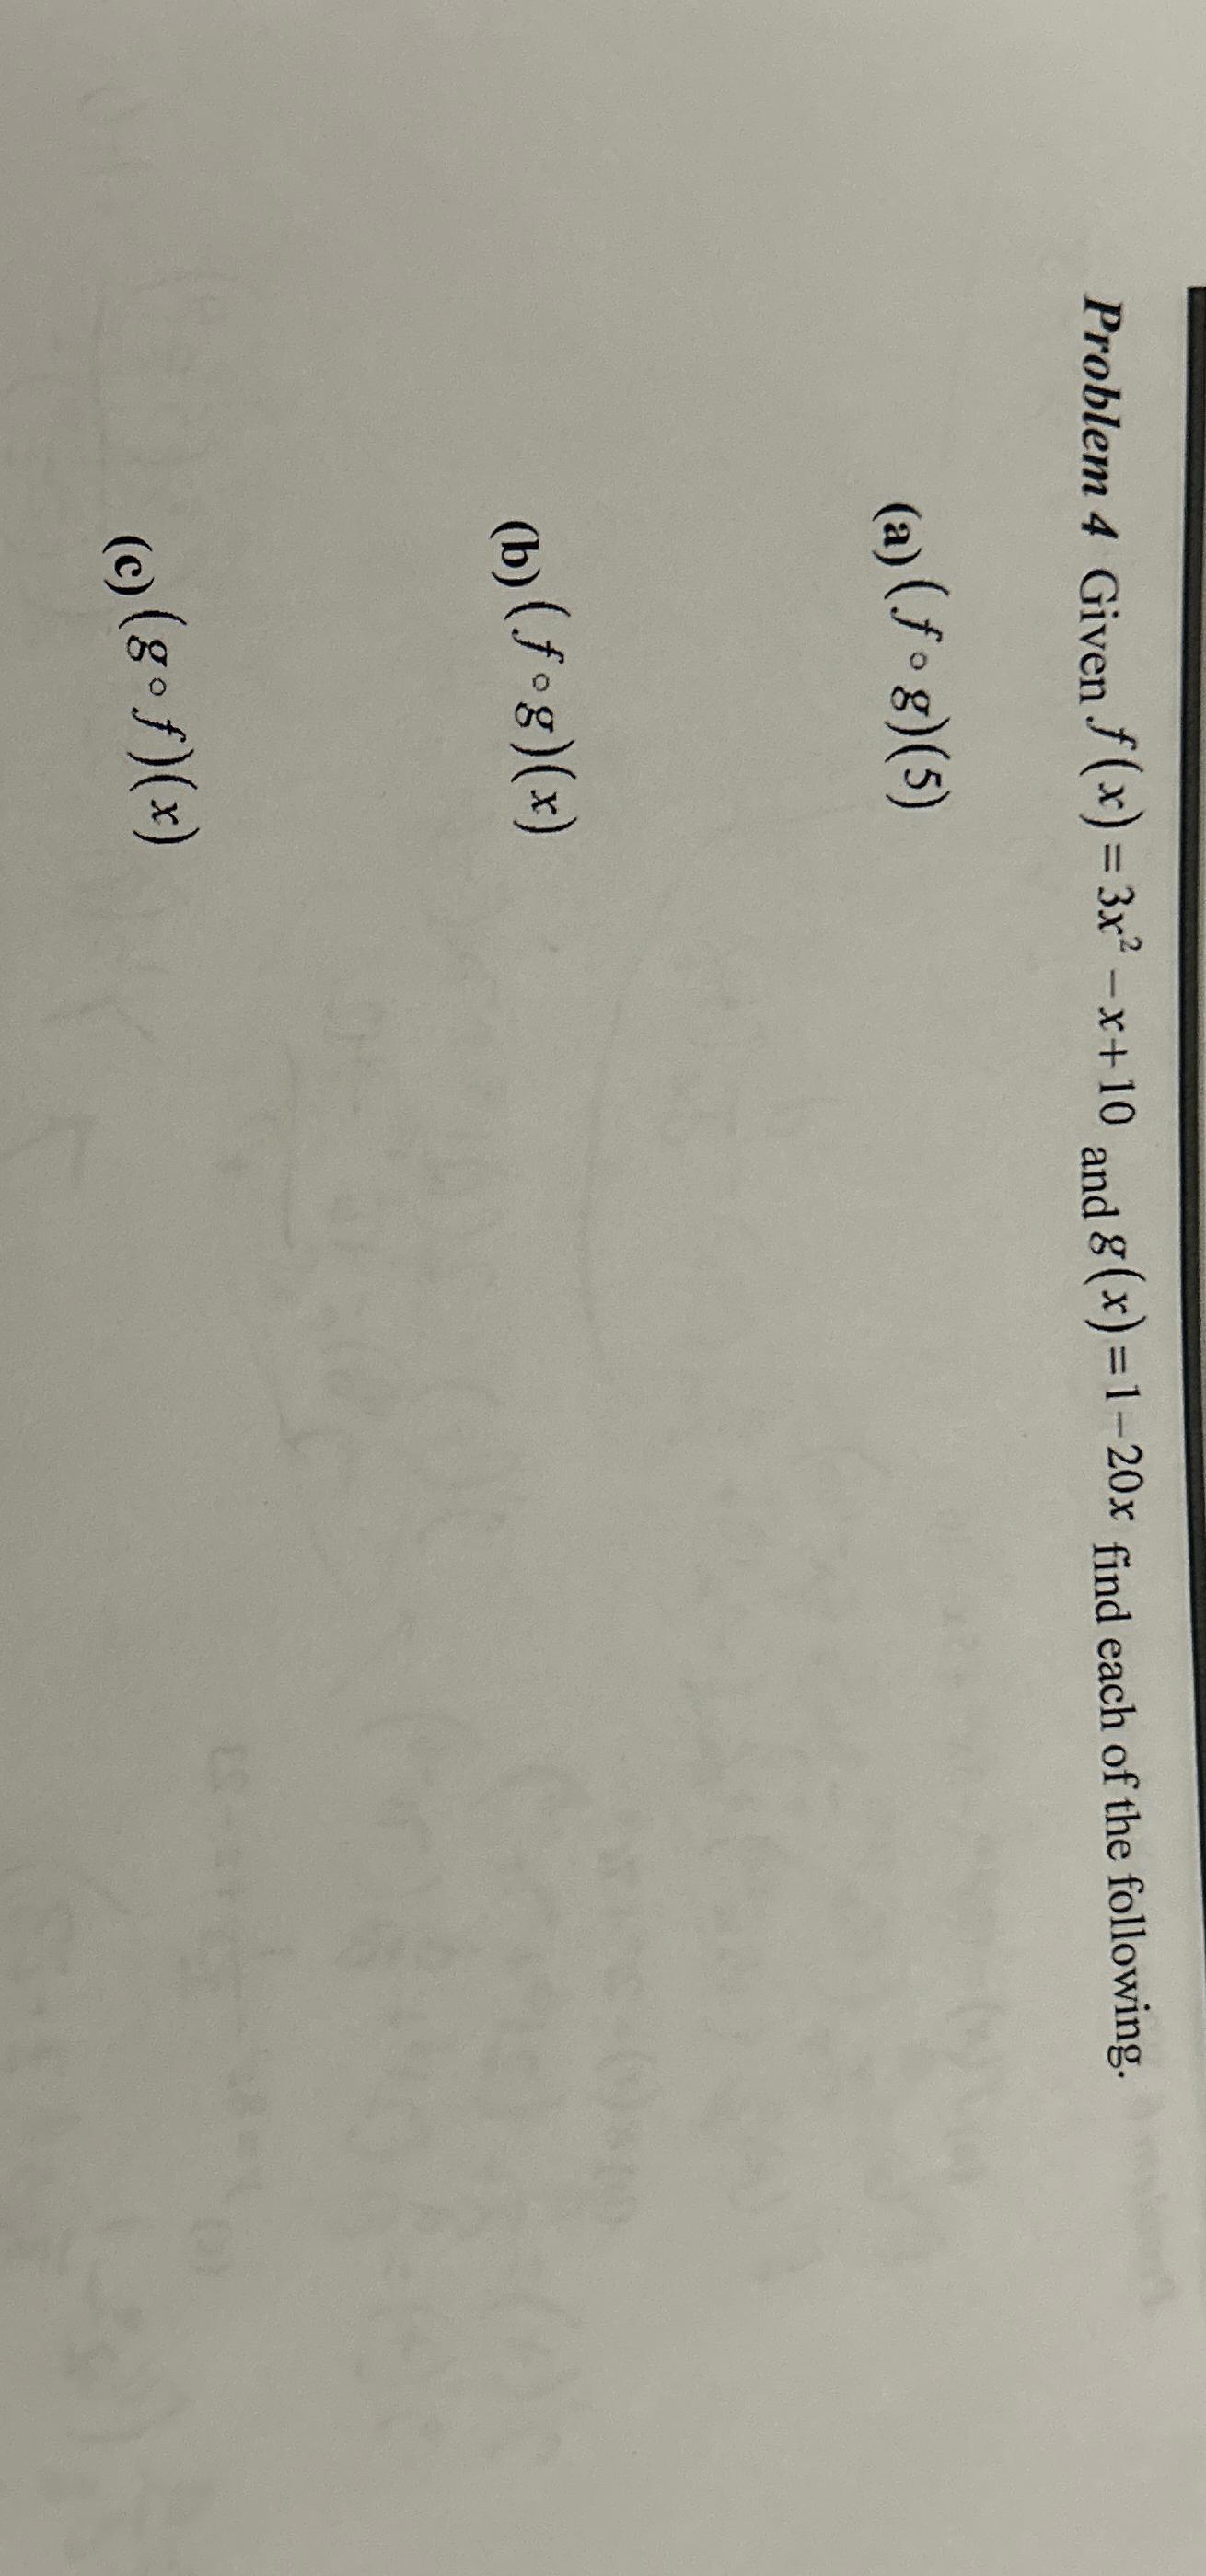 Problem 4 Given f(x) = 3x² − x + 10 and g(x) = 1 − 20x find each of the following.
(a) (f ∘ g)(5)
(b) (f ∘ g)(x)
(c) (g ∘ f)(x)